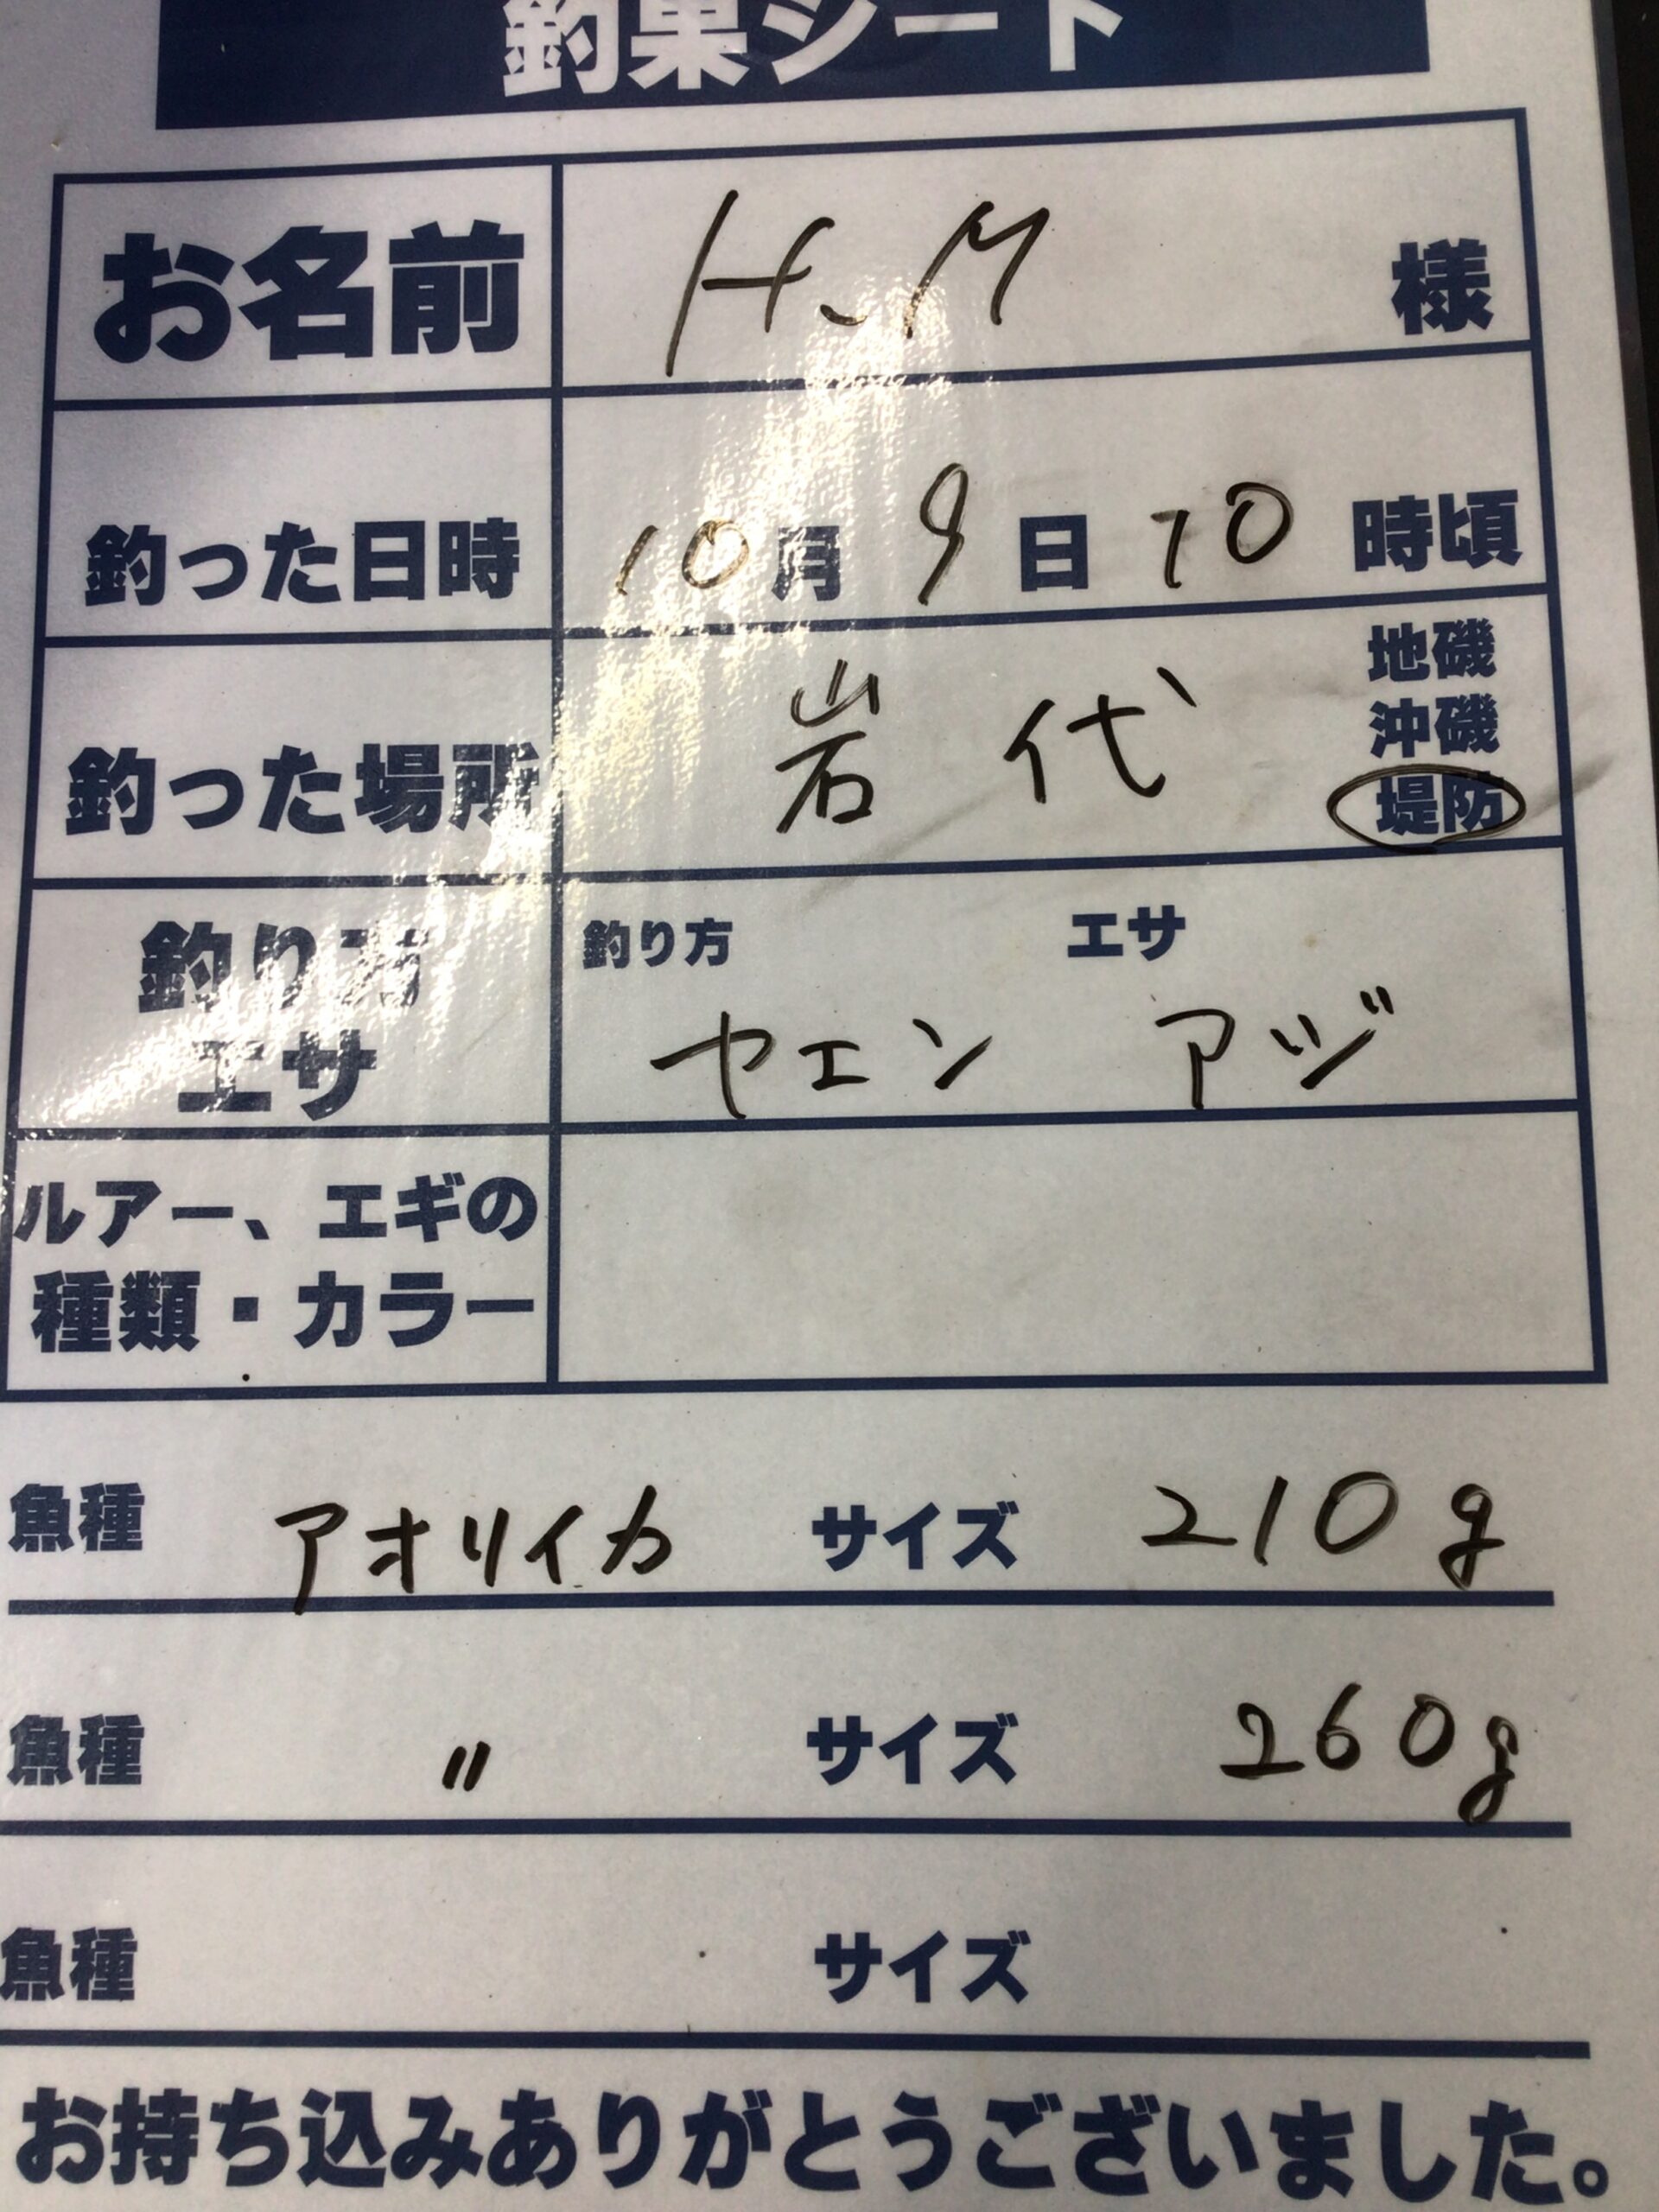 釣果シート
お名前 H.M 様
釣った日時 10月9日10時頃
釣った場所 岩代 地磯 沖磯 堤防
釣り方 エサ 釣り方 エサ
ヤエン アジ
ルアー、エギの
種類・カラー
魚種 アオリイカ サイズ 210g
魚種 〃 サイズ 260g
魚種 サイズ
お持ち込みありがとうございました。